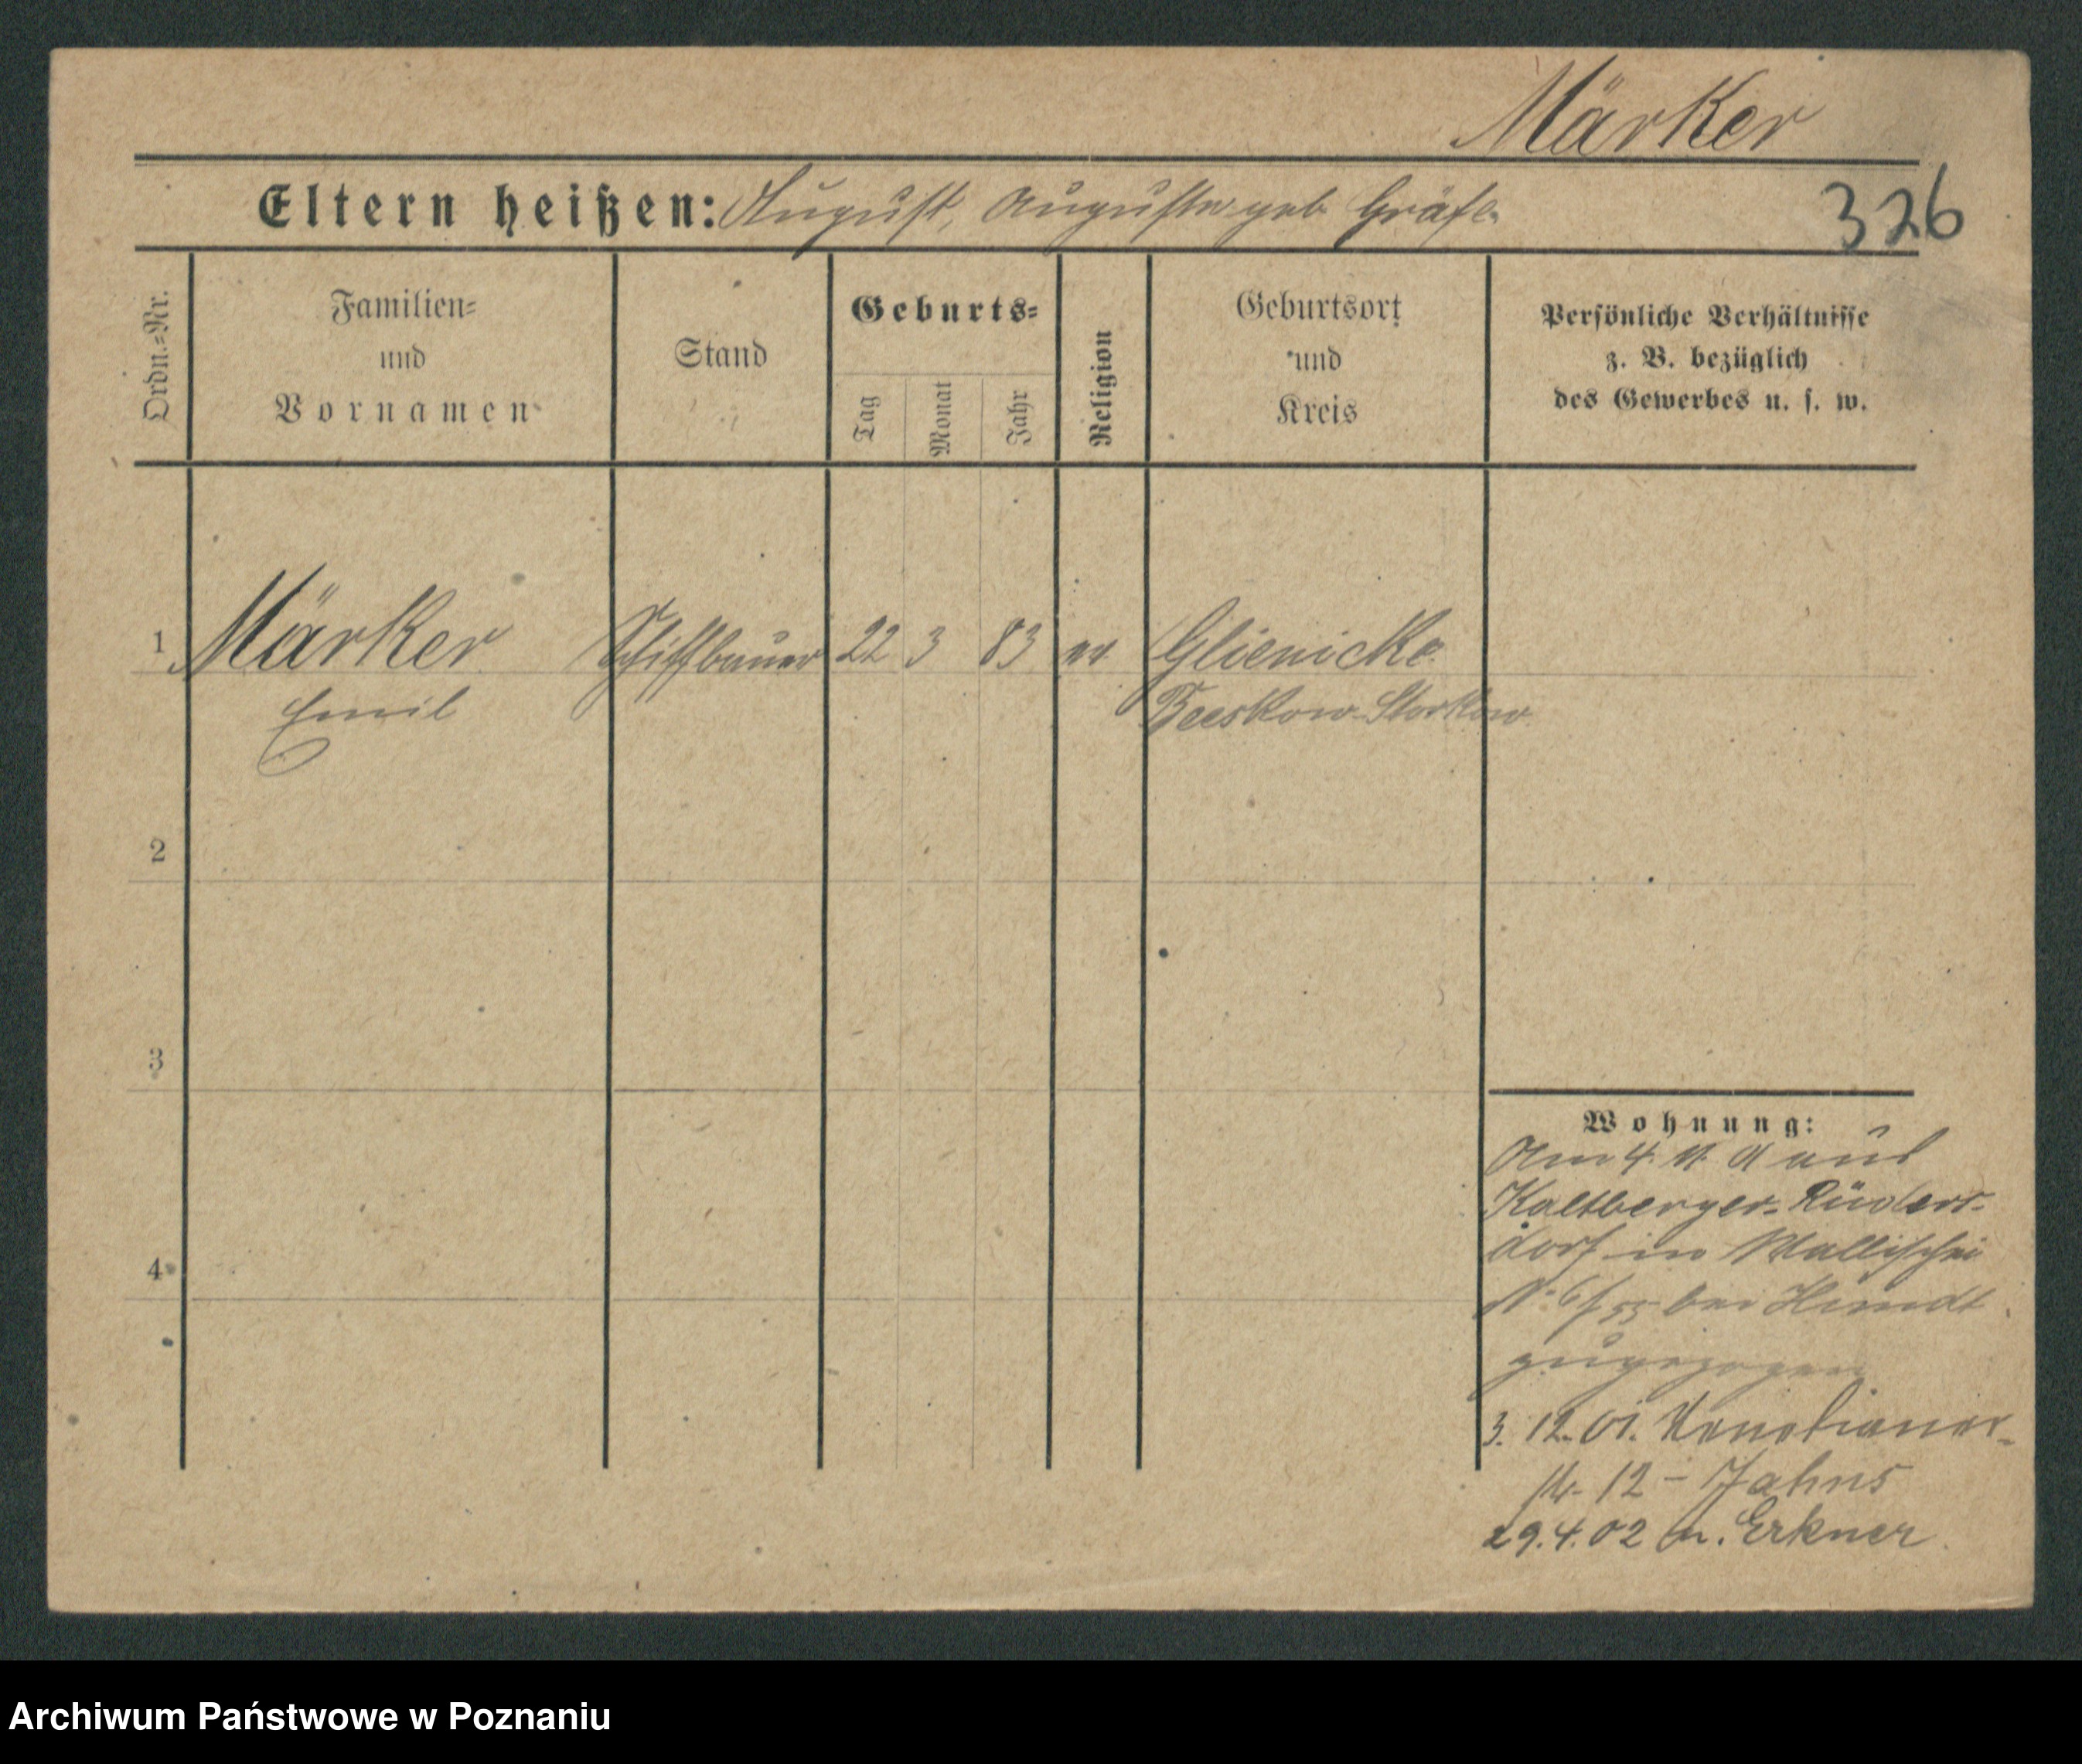 Märker
Eltern heißen: August, Auguste geb Gräfe
326
Ordn.-Nr.
Familien-
und
Vornamen
Stand
Geburts-
Tag
Monat
Jahr
Religion
Geburtsort
und
Kreis
Persönliche Verhältnisse
z. B. bezüglich
des Gewerbes u. s. w.
1 Märker Schiffbauer 22 3 83 ev Glienicke
Emil Beeskow-Storkow
2
3
4
Wohnung:
Am 4. 11. 01 aus
Kaltberger-Rüders-
dorf in Wallischei
N. 6/55 bei Hundt
zugezogen
3. 12. 01. Venetianer-
str. 12 - Jahns
29.4.02 n. Erkner
Archiwum Państwowe w Poznaniu